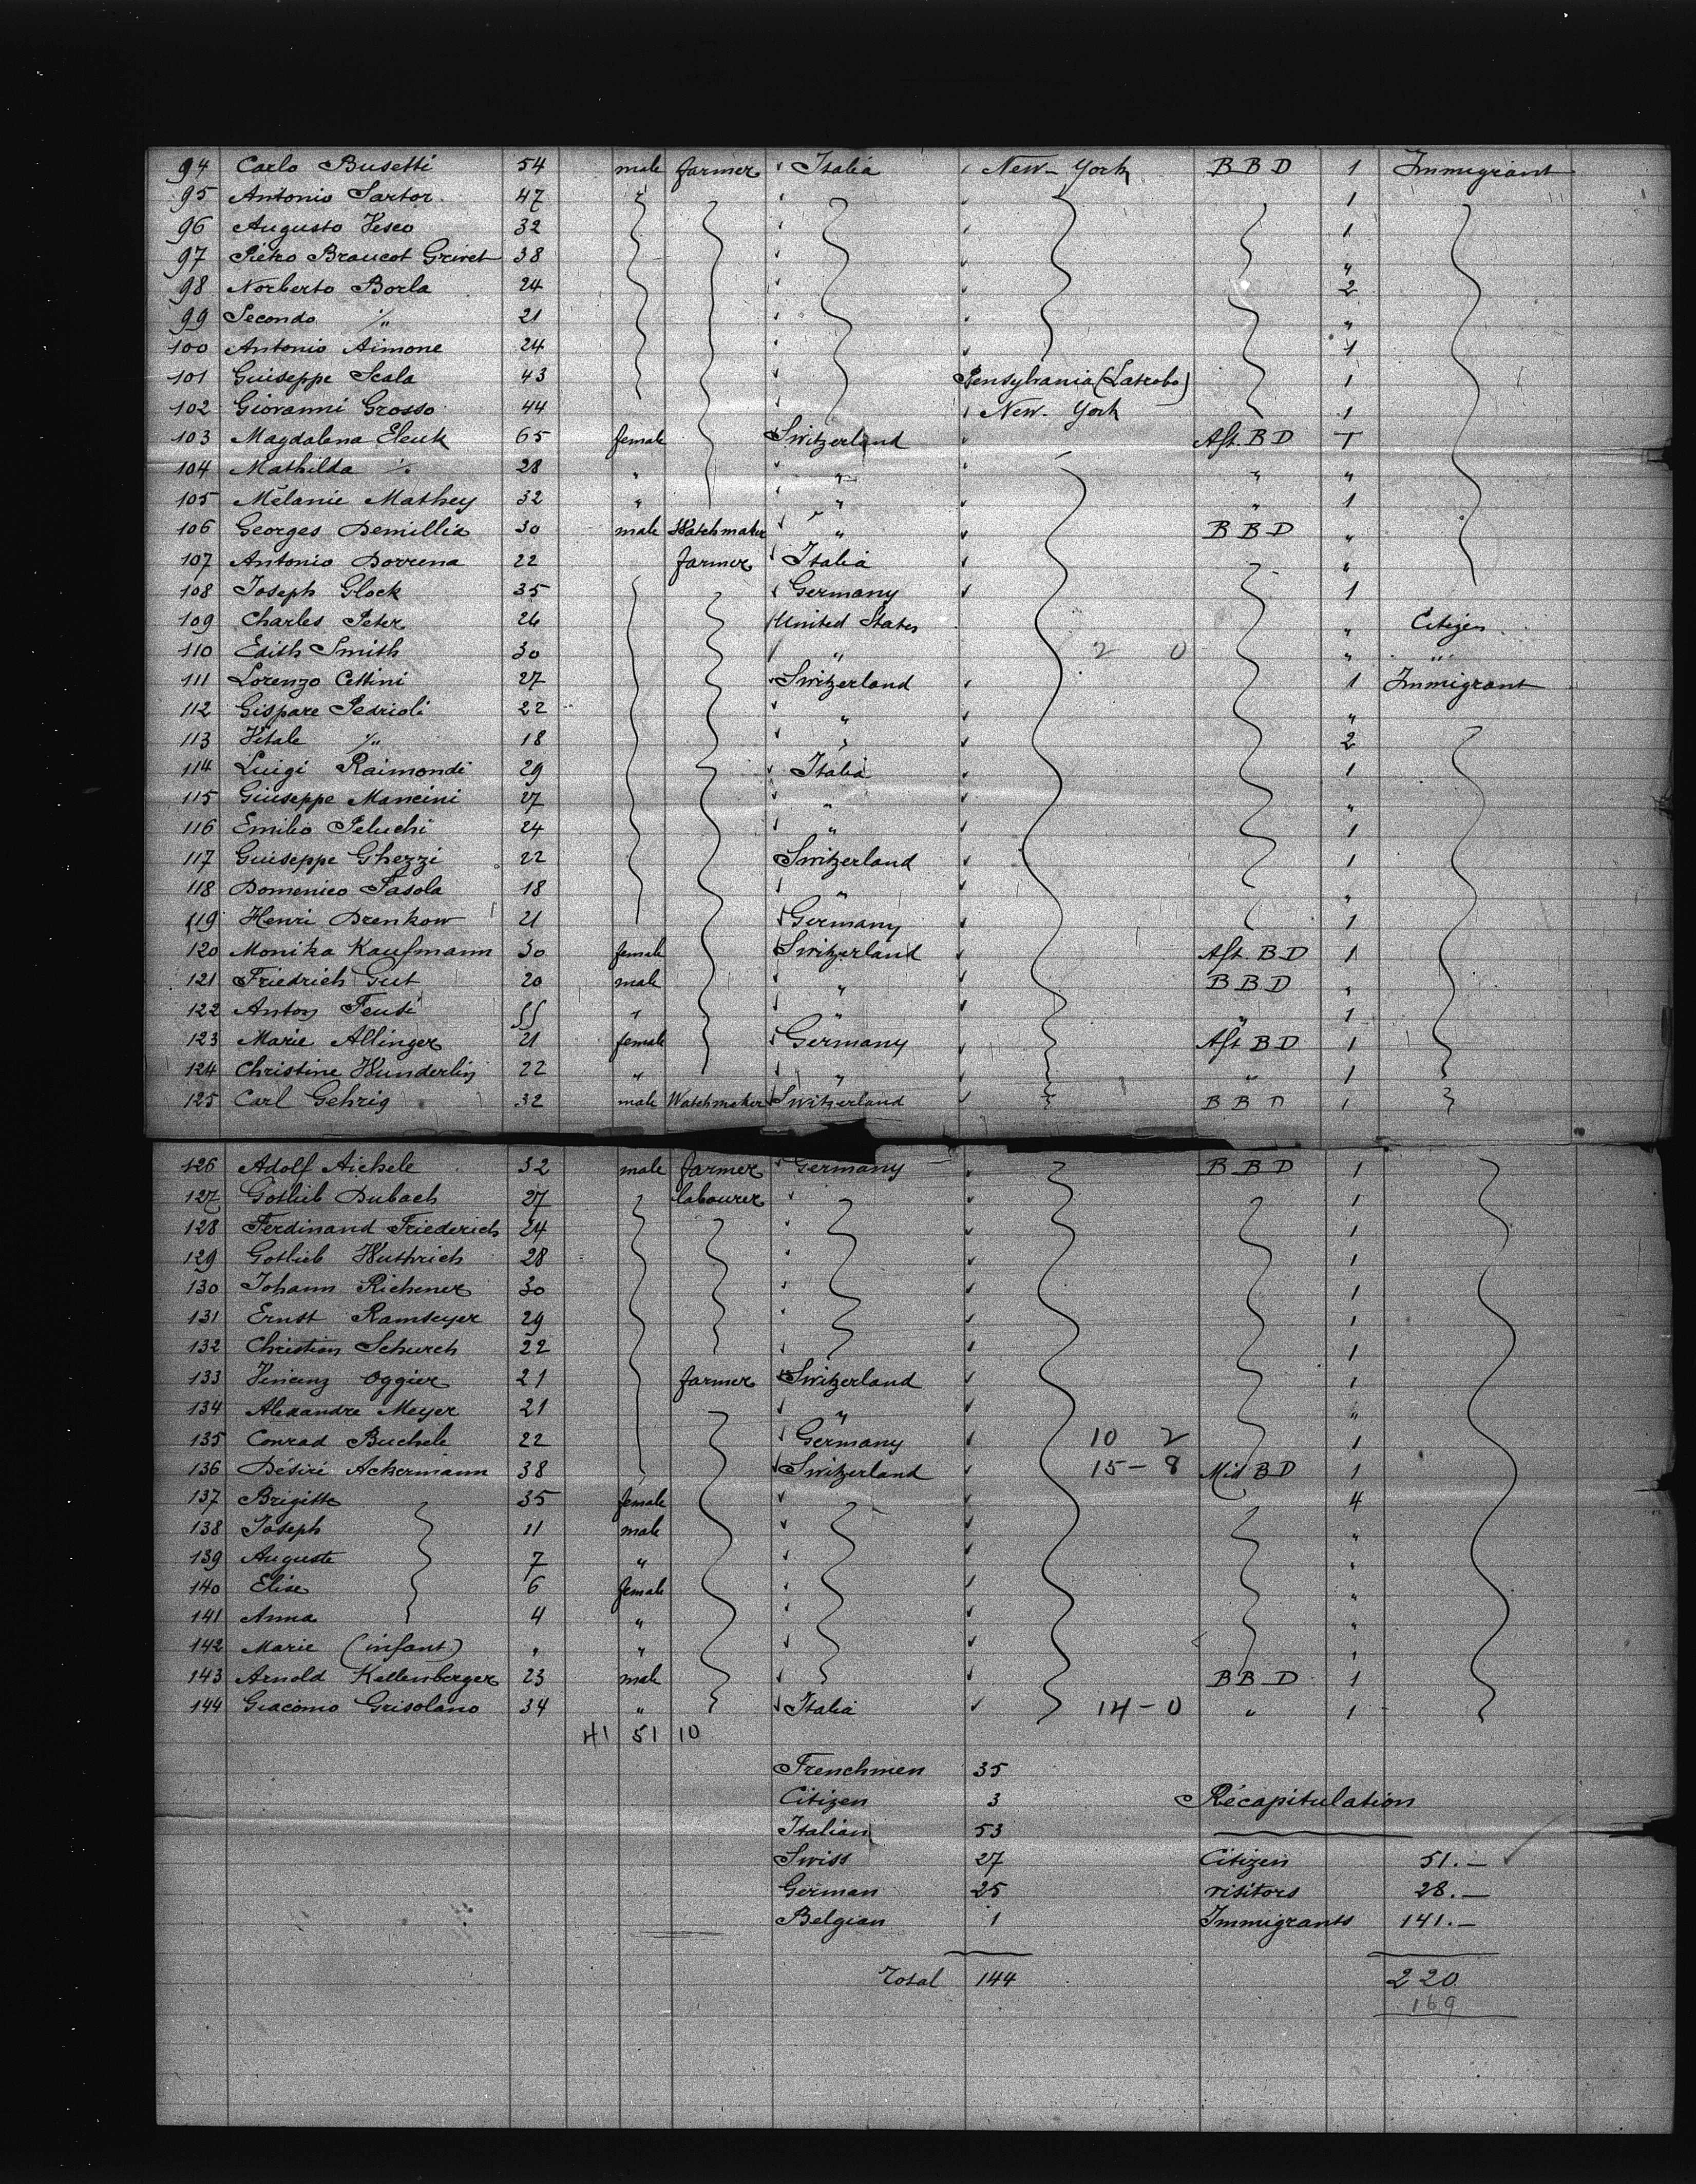 94 Carlo Busetti 54 male farmer Italia New-York BBD 1 Immigrant
95 Antonio Sartor 47 1
96 Augusto Vesco 32 1
97 Pietro Braucot Grivet 38 "
98 Norberto Borla 24 2
99 Secondo " 21 "
100 Antonio Aimone 24 1
101 Guiseppe Scala 43 Pensylvania (Latrobe) 1
102 Giovanni Grosso 44 New-York 1
103 Magdalena Eleuk 65 female Switzerland Aft. BD 1
104 Mathilda " 28 " " " "
105 Mélanie Mathey 32 " " " 1
106 Georges Demillia 30 male Watchmaker " BBD "
107 Antonio Dorrena 22 farmer Italia "
108 Joseph Glock 35 Germany 1
109 Charles Peter 26 United States " Citizen
110 Edith Smith 30 " 2 0 " "
111 Lorenzo Cettini 27 Switzerland 1 Immigrant
112 Gispare Pedrioli 22 " "
113 Vitale " 18 " 2
114 Luigi Raimondi 29 Italia 1
115 Giuseppe Mancini 27 " "
116 Emilio Peluchi 24 " 1
117 Guiseppe Ghezzi 22 Switzerland 1
118 Domenico Pasola 18 " "
119 Henri Drenkow 21 Germany 1
120 Monika Kaufmann 30 female Switzerland Aft. BD 1
121 Friedrich Gut 20 male " BBD "
122 Anton Feusi 55 " " " 1
123 Marie Allinger 21 female Germany Aft BD 1
124 Christine Wunderlin 22 " " " 1
125 Carl Gehrig 32 male Watchmaker Switzerland BBD 1
126 Adolf Aichele 32 male farmer Germany BBD 1
127 Gotlieb Dubach 27 labourer 1
128 Ferdinand Friederich 24 1
129 Gotlieb Wuthrich 28 1
130 Johann Richener 30 1
131 Ernst Ramseyer 29 1
132 Christian Schurch 22 1
133 Vincenz Oggier 21 farmer Switzerland 1
134 Alexandre Meyer 21 " "
135 Conrad Buchele 22 Germany 10 2 1
136 Désiré Ackermann 38 Switzerland 15-8 Mid BD 1
137 Brigitte 35 female 4
138 Joseph 11 male "
139 Auguste 7 " "
140 Elise 6 female "
141 Anna 4 " "
142 Marie (infant) " " "
143 Arnold Kellenberger 23 male BBD 1
144 Giacomo Grisolano 34 " Italia 14-0 " 1
41 51 10
Frenchmen 35
Citizen 3 Récapitulation
Italian 53
Swiss 27 Citizen 51.-
German 25 visitors 28.-
Belgian 1 Immigrants 141.-
Total 144 220
169